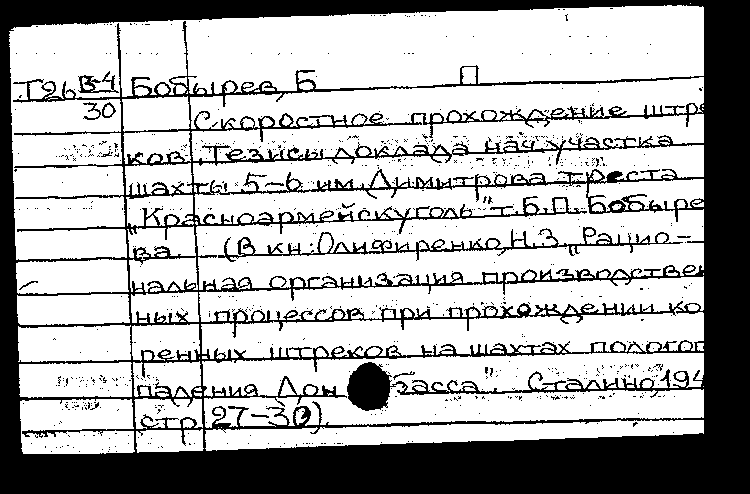 Т26 В-4 Бобырев, Б П
30
Скоростное прохождение штре
ков. Тезисы доклада нач. участка
шахты 5-6 им. Димитрова треста
„Красноармейскуголь" т. Б.П. Бобыре
ва. (В кн.: Олифиренко, Н.З. „Рацио-
нальная организация производствен
ных процессов при прохождении ко
ренных штреков на шахтах пологог
падения Дон басса". Сталино, 194
стр. 27-30).